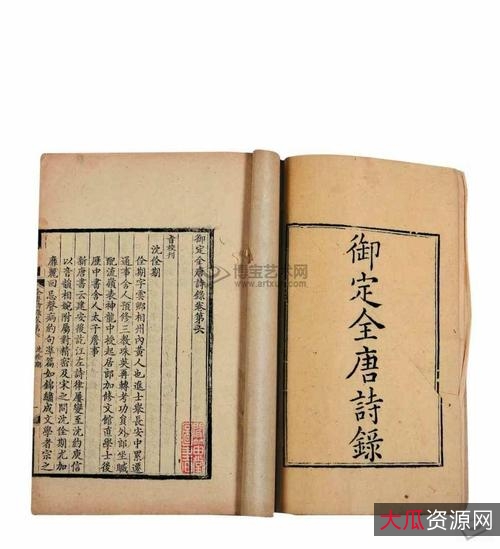 御定全唐詩錄
御定全唐詩錄卷第六
音校刊
沈佺期
佺期字雲卿相州內黃人也進士舉長安中累遷
通事舍人預修三教珠英再轉考功員外郎坐贓
配流嶺表神龍中授起居郎加修文館直學士後
歷中書舍人太子詹事
新唐書云建安後訖江左詩律屢變至沈約庾信
以音韻相婉附屬對精密及宋之問沈佺期尤加
靡麗回忌聲病約句準篇如錦繡成文學者宗之
博宝艺术网
www.artxun.com
大瓜资源网